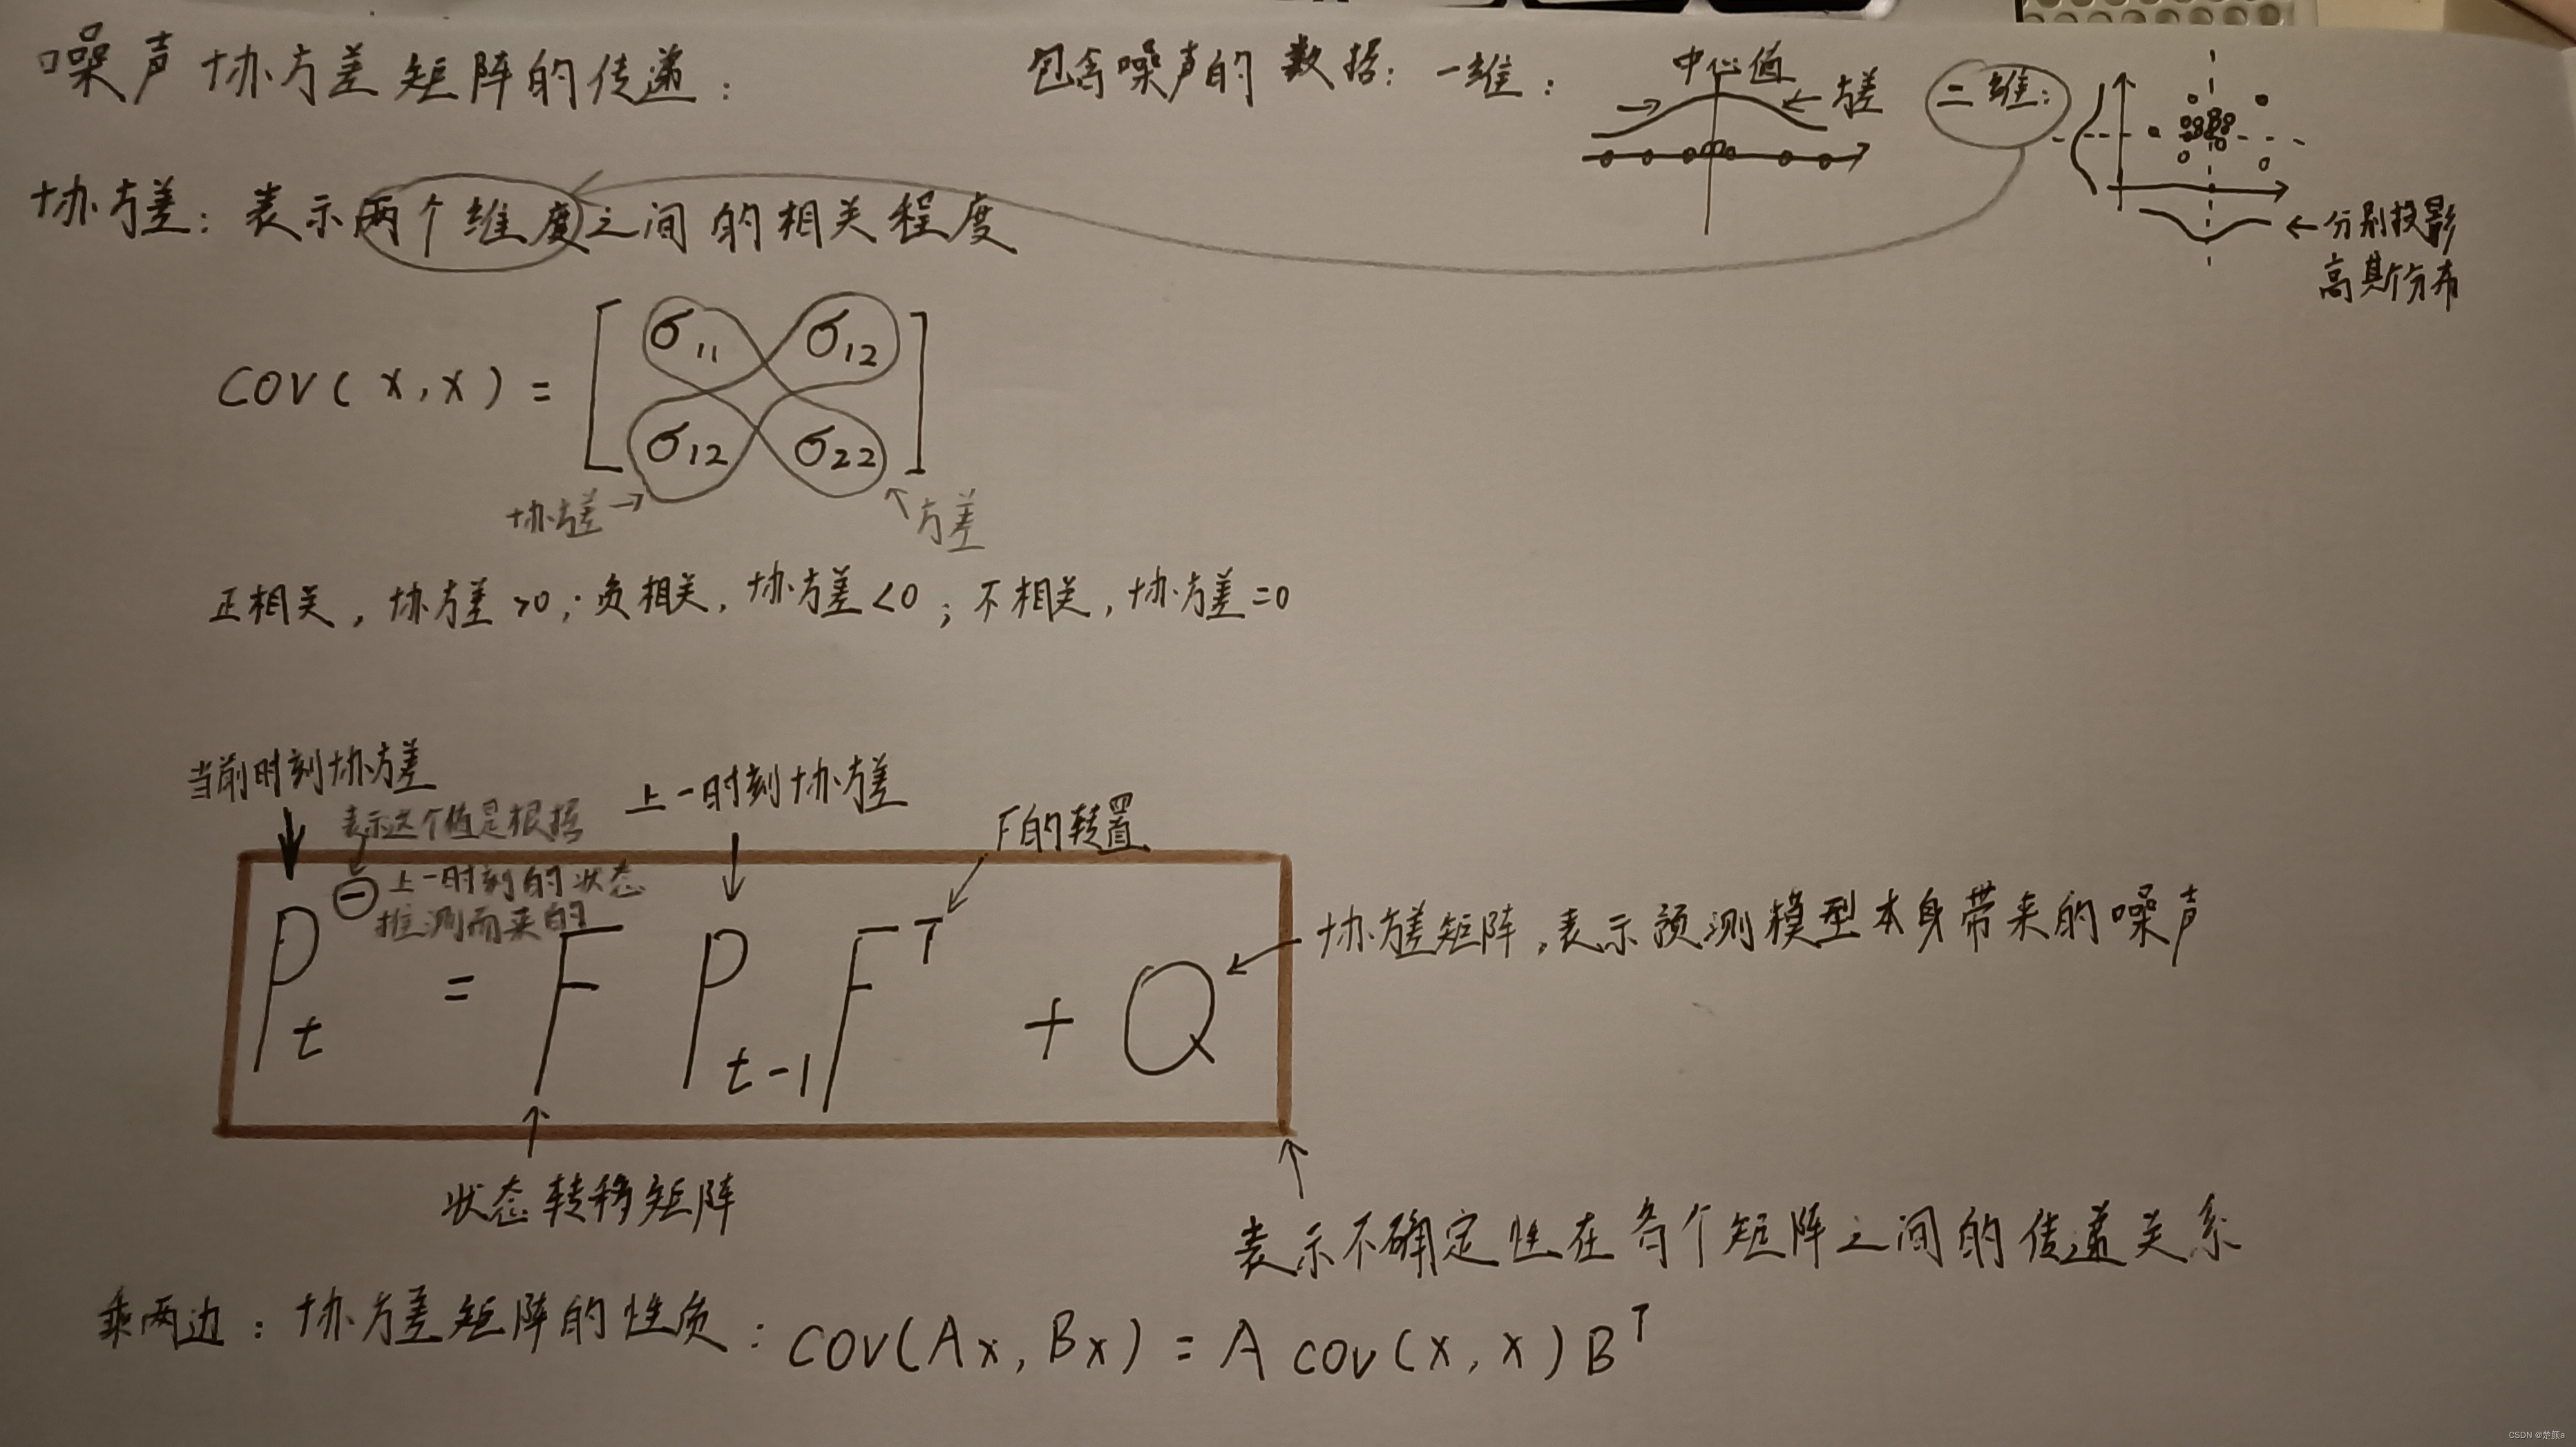 噪声协方差矩阵的传递：
包含噪声的数据：一维：
中心值
方差
二维：
分别投影
高斯分布
协方差：表示两个维度之间的相关程度
cov(x,x) = [σ11 σ12
σ12 σ22]
协方差→
方差
正相关，协方差>0；负相关，协方差<0；不相关，协方差=0
当前时刻协方差
表示这个值是根据
上一时刻的状态
推测而来的
上一时刻协方差
F的转置
P_t^- = F P_{t-1} F^T + Q
协方差矩阵，表示预测模型本身带来的噪声
状态转移矩阵
表示不确定性在各个矩阵之间的传递关系
乘两边：协方差矩阵的性质：cov(Ax, Bx) = A cov(x, x) B^T
CSDN @楚颜a